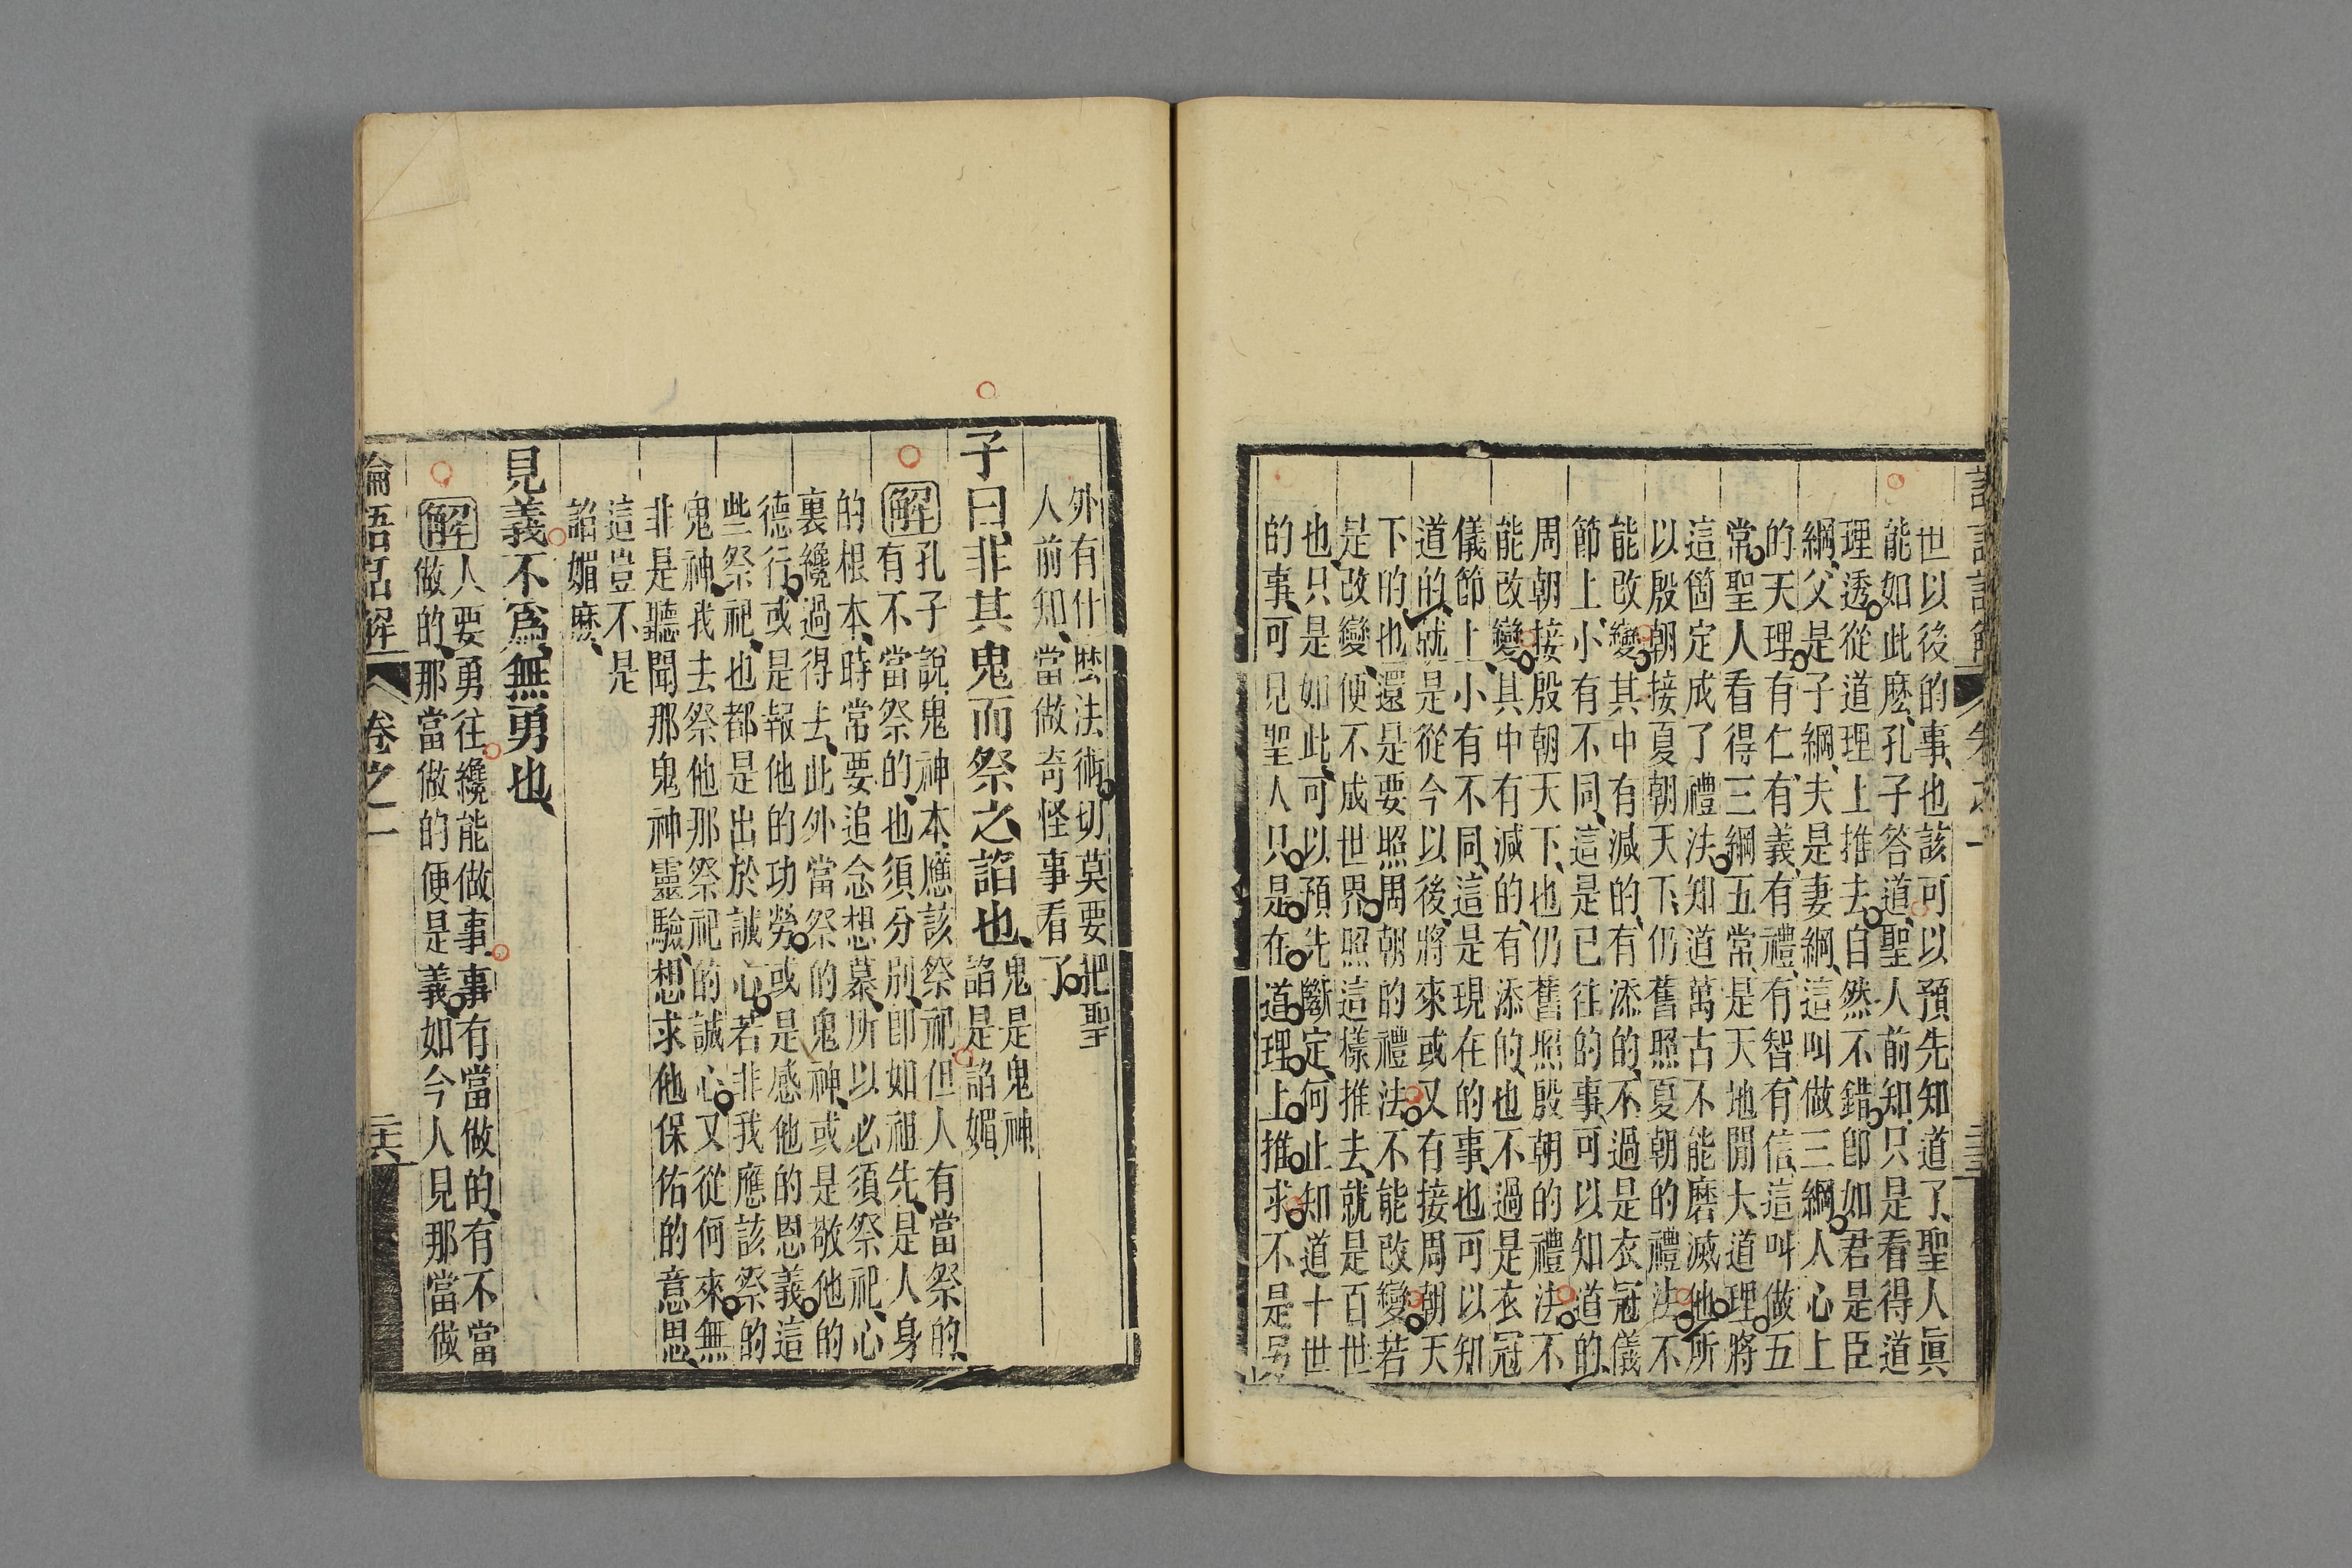 世以後的事、也該可以預先知道了、聖人眞
能如此麽、孔子答道、聖人前知、只是看得道
理透、從道理上推去、自然不錯、卽如君是臣
綱、父是子綱、夫是妻綱、這叫做三綱、人心上
的天理、有仁、有義、有禮、有智、有信、這叫做五
常、聖人看得三綱五常、是天地閒大道理、將
這箇定成了禮法、知道萬古不能磨滅他、所
以殷朝接夏朝天下、仍舊照夏朝的禮法、不
能改變、其中有減的、有添的、不過是衣冠儀
節上、小有不同、這是已往的事、可以知道的、
周朝接殷朝天下、也仍舊照殷朝的禮法、不
能改變、其中有減的、有添的、也不過是衣冠
儀節上、小有不同、這是現在的事、也可以知
道的、就是從今以後、將來或又有接周朝天
下的、也還是要照周朝的禮法、不能改變、若
是改變、便不成世界、照這樣推去、就是百世
也、只是如此、可以預先斷定、何止知道十世
的事、可見聖人只是在道理上推求、不是另
外有什麽法術、切莫要把聖
人前知、當做奇怪事看了
子曰、非其鬼而祭之、諂也、鬼是鬼神
諂是諂媚
解 孔子說、鬼神本應該祭祀、但人有當祭的、
有不當祭的、也須分別、卽如祖先、是人身
的根本、時常要追念想慕、所以必須祭祀、心
裏纔過得去、此外當祭的鬼神、或是敬他的
德行、或是報他的功勞、或是感他的恩義、這
些祭祀、也都是出於誠心、若非我應該祭的
鬼神、我去祭他、那祭祀的誠心、又從何來、無
非是聽聞那鬼神靈驗、想求他保佑的意思、
這豈不是
諂媚麽、
見義不爲、無勇也、
解 人要勇往、纔能做事、事有當做的、有不當
做的、那當做的、便是義、如今人見那當做
論語話解 卷之一 二十六